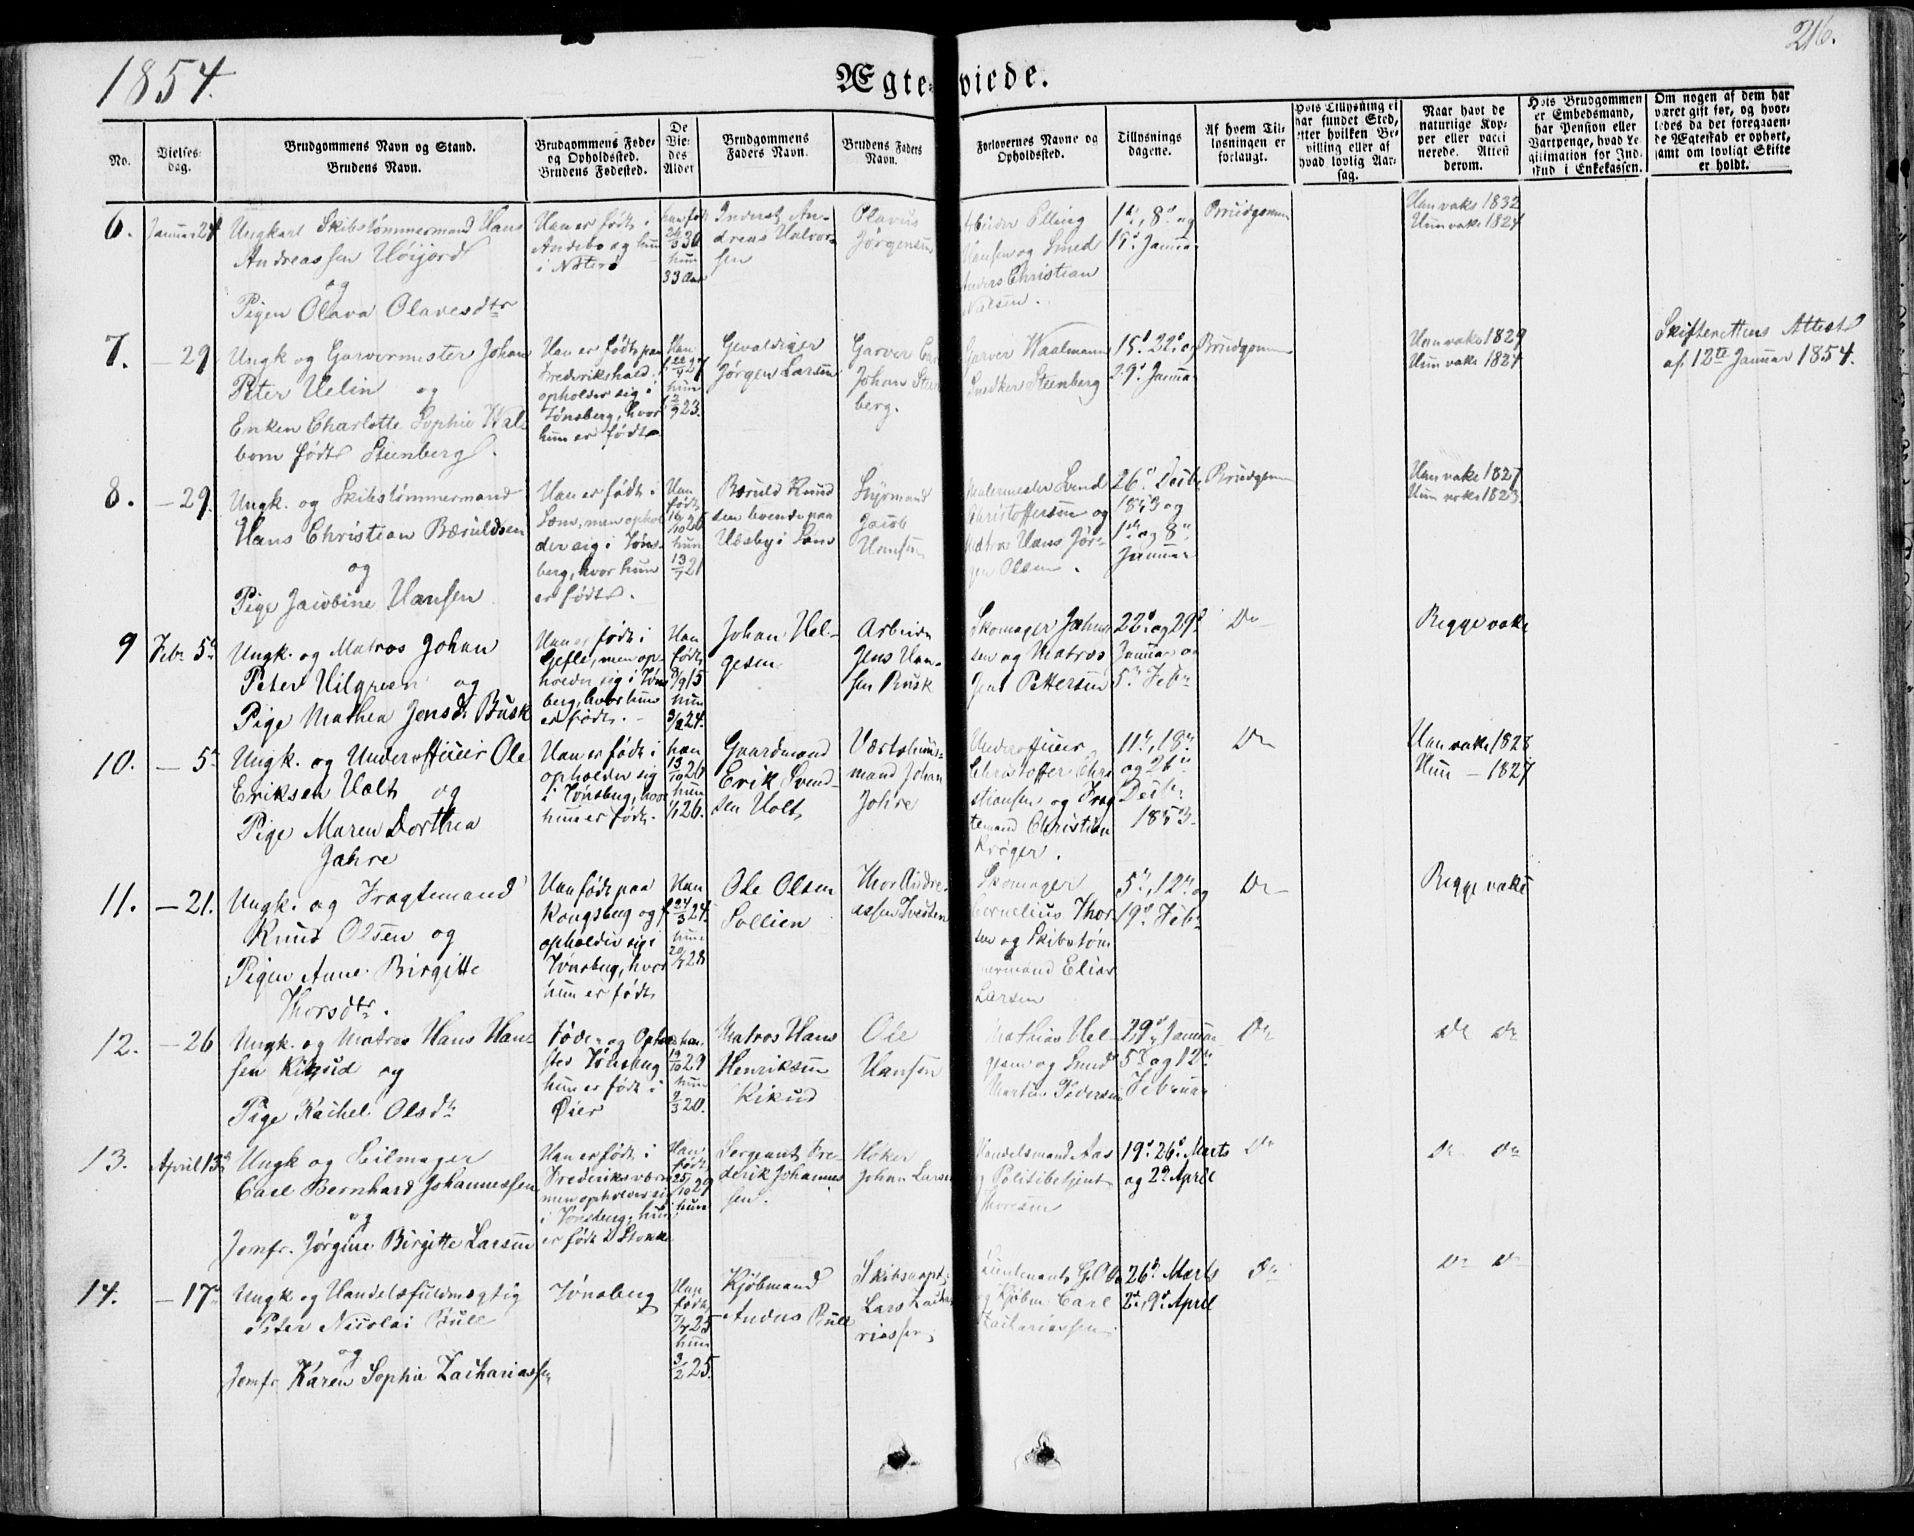 1854.
Ægteviede.
216.
No.
Vielses dag.
Brudgommens Navn og Stand.
Brudens Navn.
Brudgommens Føde- og Opholdssted.
Brudens Fødested.
De Viedes Alder
Brudgommens Faders Navn.
Brudens Faders Navn.
Forlovernes Navne og Opholdssted.
Tillysnings dagene.
Af hvem Tillysningen er forlangt.
Hvis Tillysning ei har fundet Sted, efter hvilken Bevilling eller af hvad lovlig Aarsag.
Naar havt de naturlige Kopper eller vaccinerede. Attest derom.
Hvis Brudgommen er Embedsmand, har Pension eller Vartpenge, hvad Legitimation for Indskud i Enkekassen.
Om nogen af dem har været gift før, og hvorledes da det foregaaende Ægteskab er ophørt, samt om lovligt Skifte er holdt.
6.
Januar 24
Ungkarl Skibstømmermand Hans
Andreassen Høijord
og
Pigen Olava Olavesdtr
Han er født i
Andebo og hun
i Nøterø
han født
24/3 30
hun
33 Aar
Andreas Halvorsen
Olavus
Jørgensen
Arbeider Elling
Hansen og Smed
Anders Christian
Nilsen.
1ste, 8de og
15de Januar
Brudgommen
Han vakc 1832
Hun vakc 1824
7.
– 29
Ungk og Garvermester Johan
Peter Uelin og
Enken Charlotte Sophie Walbom født Steenberg.
Han er født paa
Frederikshald,
opholder sig i
Tønsberg, hvor
hun er født.
Han
22/4 27
hun
2/9 23.
Gevaldiger
Jørgen Larsen
Garver
Johan Steenberg.
Garver Waalmann
Snedker Steenberg
15de 22de og
29de Januar
Brudgommen
Han vakc 1829
Hun vakc 1824
Skifterettens Attest
af 12te Januar 1854.
8.
– 29.
Ungk. og Skibstømmermand
Hans Christian Bæruldsen
og
Pige Jacobine Hansen
Han er født i
Sem, men opholder sig i Tønsberg, hvor hun
er født.
Han
født
16/10 26
hun
13/7 21
Bæruld Knudsen boende paa
Huseby i Sem
Styrmand
Jacob
Hansen
Malermester Svend
Christoffersen og
Matros Hans Jørgen Olsen.
26de Decbr
1853 og
1ste og 8de
Januar
Brudgom
Han vakc 1827
Hun vakc 1823
9
Febr 5te
Ungk. og Matros Johan
Peter Hilgreen og
Pige Mathea Jensdr Busk
Han er født i
Gefle, men opholder sig i Tønsberg, hvor hun
er født.
Han
født
/9 15
hun
24.
Johan Helgesen
Arbeider
Jens Hansen Busk
Skomager
sen og Matros
Jens Pettersen
22de og 29de
Januar og
5te Febr
Do
Begge vakc
10.
– 5te
Ungk. og Underofficier Ole
Eriksen Holt og
Pige Maren Dorthea
Jahre
Han er født i
opholder sig
i Tønsberg, hvor
hun er født.
han
13/10 26
hun
26.
Gaardmand
Erik Svendsen Holt
Værtshusmand Johan
Jahre
Underofficier
Christoffer Christiansen og Fragtemand Christian
Krøger.
11te, 18de
og 26de
Decbr
1853.
Do
Han vakc 1828
Hun – 1827
11.
– 21.
Ungk. og Fragtemand
Knud Olsen og
Pigen Anne Birgitte
Thorsdtr.
Han født paa
Kongsberg og
opholder sig i
Tønsberg, hvor
hun er født
Han
24/3 24.
hun
28
Ole Olsen
Sollien
Thor Andreassen
Skomager
Cornelius Thorsen og Skibstømmermand Elias
Larsen
5te, 12te og
19de Febr
Do
Begge vakc
12.
– 26
Ungk. og Matros Hans Hansen Kikud og
Pige Rachel Olsdtr
Føde- og Opholdssted Tønsberg
hun er født i
Øier
han
19/10 29
hun
2/3 20.
Matros Hans
Henriksen
Kikud
Ole
Hansen
Mathias Helgesen og Smed
Martin Pedersen
29de Januar
5te og 12te
Februar
Do
do do
13.
April 13de
Ungk og Seilmager
Carl Bernhard Johannessen
og
Jomfr. Jørgine Birgitte Larsen
Han er født i
Frederiksværn
men opholder sig
i Tønsberg, hun
er født i Stokke
Han
født
25/10 29
hun
Sergeant Frederik Johannessen.
Høker
Johan Larsen
Handelsmand Aas
og Politibetjent
Thoresen
19de 26de Marts
og 2den April
Do
Do do
14.
– 17de
Ungk og Handelsfuldmægtig
Peter Nicolai Bull
og
Jomfr. Karen Sophie Zachariassen
Tønsberg
Han
født
7/7 25
hun
3/2 25.
Kjøbmand
Anders Bull
Skibscapt.
Lars Zachariassen
Lieutenant
og Kjøbm. Carl
Zachariassen
26de Marts
2den, 9de April
Do
Do Do